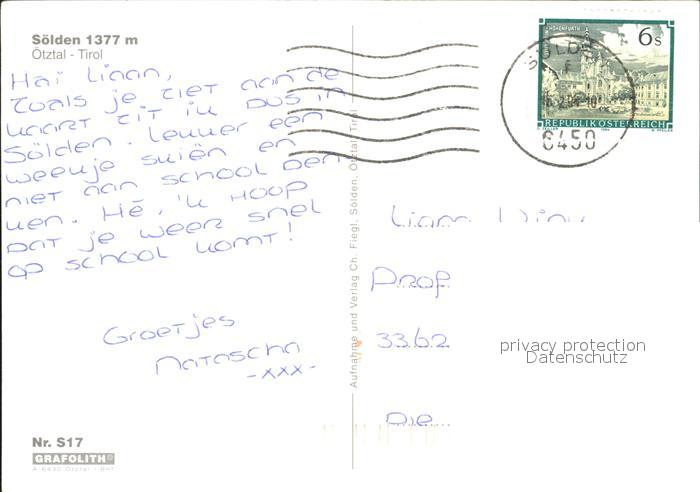 Sölden 1377 m
Ötztal - Tirol
Hai Liaan,
Zoals je ziet aan de
kaart zit ik dus in
Sölden. Lekker een
weekje skiën en
niet aan school den
ken. Hé, 'k hoop
dat je weer snel
op school komt!
Groetjes
Natascha
-xxx-
Nr. S17
GRAFOLITH®
A-6430 Ötztal - Bhf
Aufnahme und Verlag Ch. Fiegl, Sölden, Ötztal, Tirol
HOHENFURTH
6 S
REPUBLIK ÖSTERREICH
SÖLDE
6450
Prof
3362
Die
privacy protection
Datenschutz